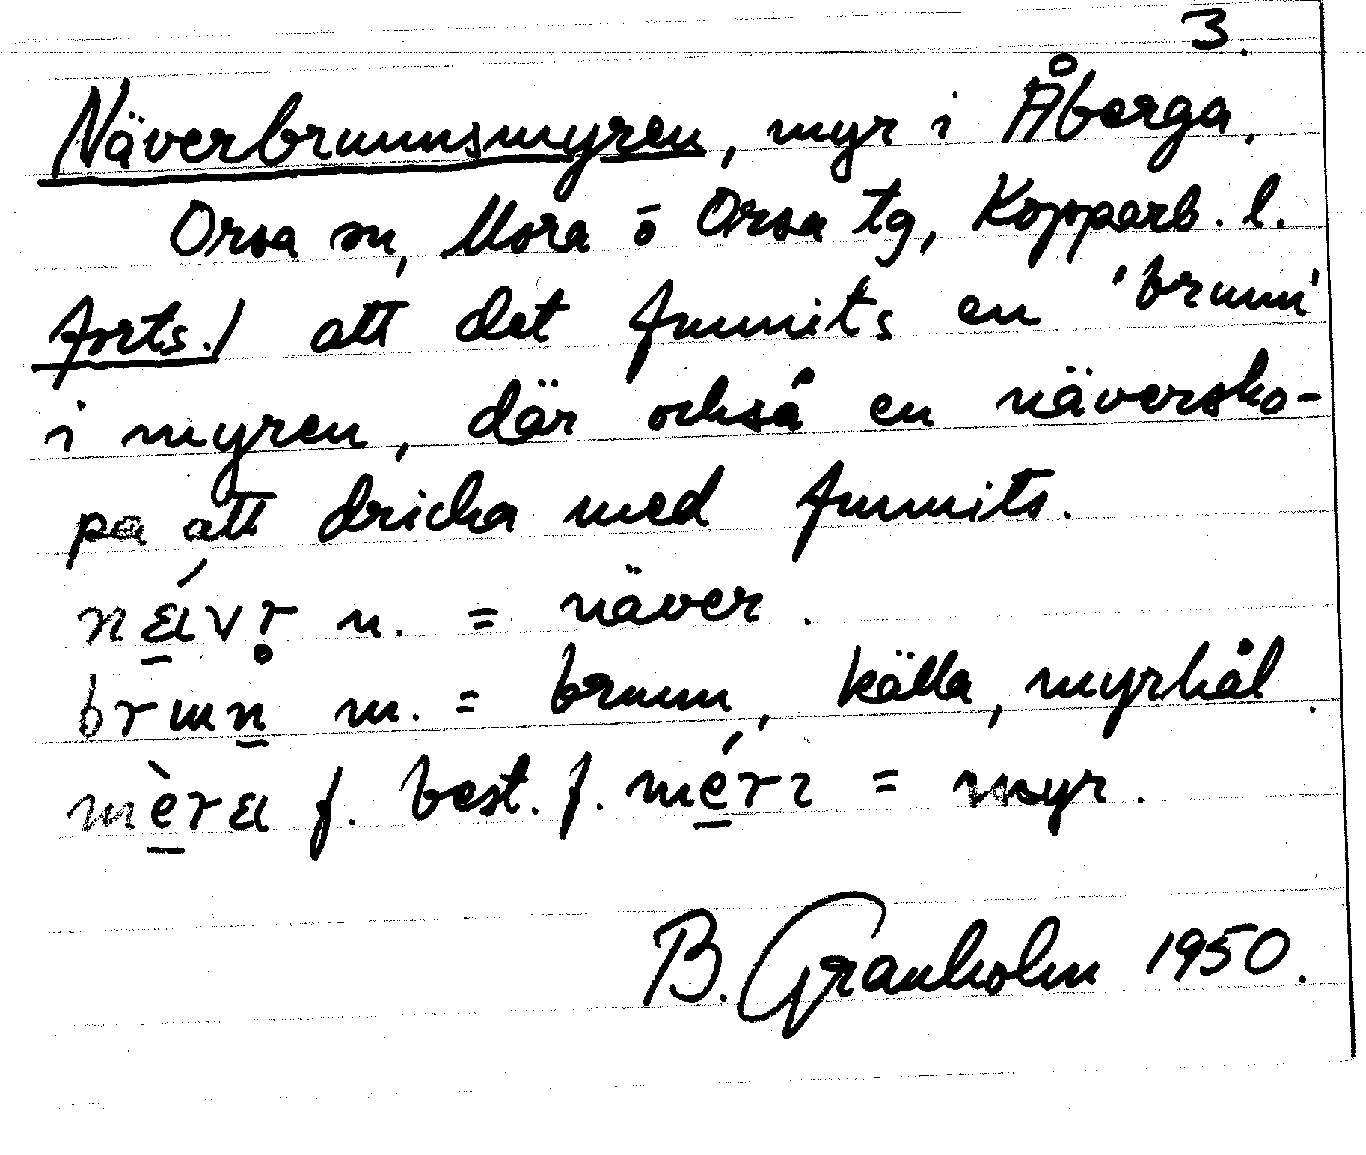 3.
Näverbrunnsmyren, myr i Åberga.
Orsa sn, Mora o Orsa tg, Kopparb. l.
forts./ att det funnits en 'brunn'
i myren, där också en näversko-
pa att dricka med funnits.
nɛ́ıvr̥ n. = näver.
brɯn m. = brunn, källa, myrhål.
mèra f. best. f. mérɩ = myr.
B. Granholm 1950.